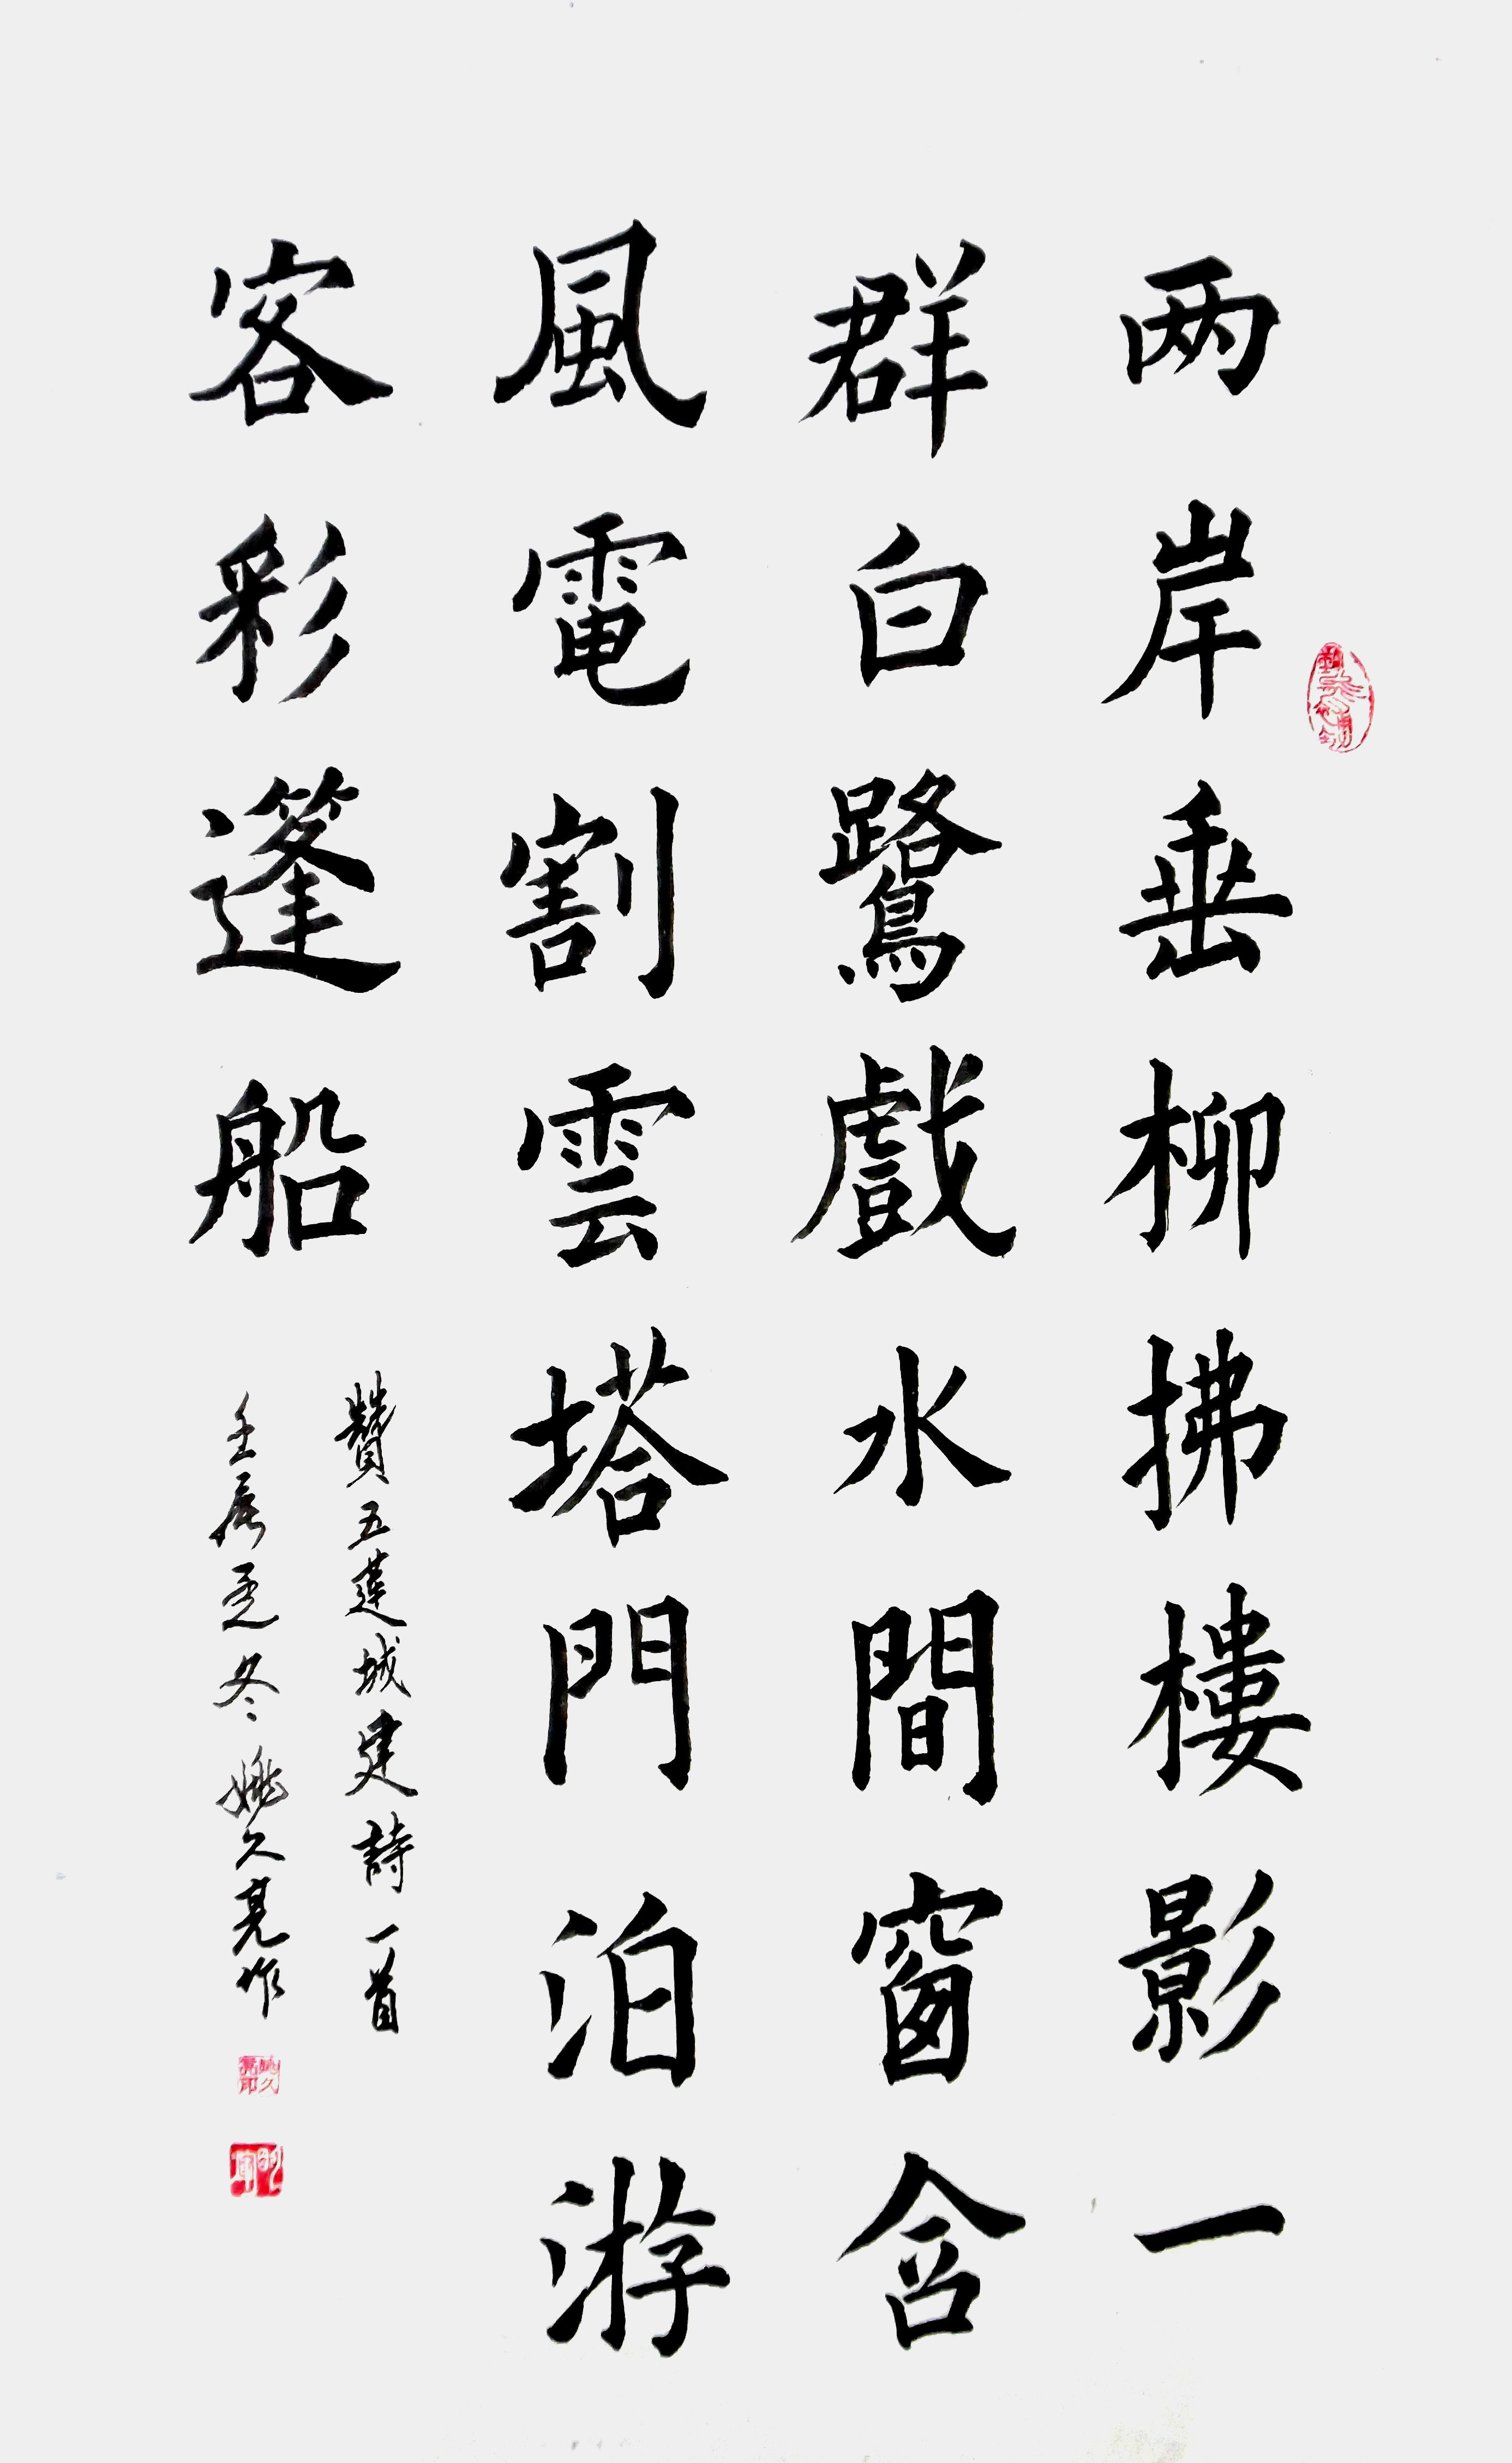 两岸垂柳拂樓影一
群白鷺戲水間窗含
風電割雲塔門泊游
客彩篷船
贊五蓮城建詩一首
壬辰孟冬姚久亮作